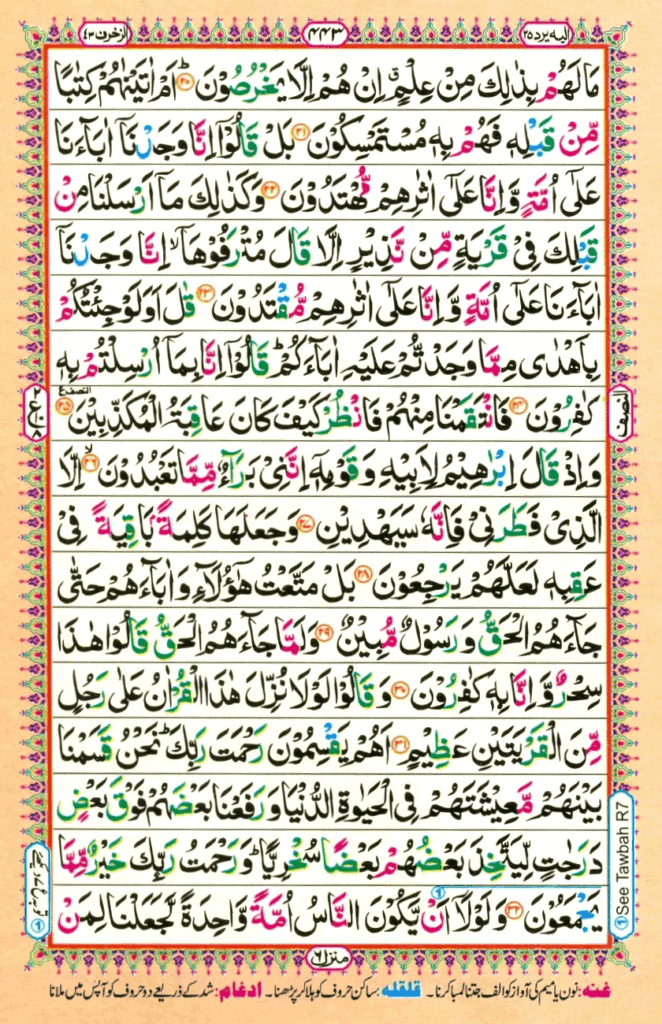 اليه يرد ٢٥
٤٤٣
الزخرف ٤٣
مَا لَهُمْ بِذٰلِكَ مِنْ عِلْمٍ ۗ اِنْ هُمْ اِلَّا يَخْرُصُوْنَ ؕ ﴿۲۰﴾ اَمْ اٰتَيْنٰهُمْ كِتٰبًا
مِّنْ قَبْلِهٖ فَهُمْ بِهٖ مُسْتَمْسِكُوْنَ ﴿۲۱﴾ بَلْ قَالُوْۤا اِنَّا وَجَدْنَاۤ اٰبَآءَنَا
عَلٰۤى اُمَّةٍ وَّاِنَّا عَلٰۤى اٰثٰرِهِمْ مُّهْتَدُوْنَ ﴿۲۲﴾ وَكَذٰلِكَ مَاۤ اَرْسَلْنَا مِنْ
قَبْلِكَ فِيْ قَرْيَةٍ مِّنْ نَّذِيْرٍ اِلَّا قَالَ مُتْرَفُوْهَاۤ ۙ اِنَّا وَجَدْنَاۤ
اٰبَآءَنَا عَلٰۤى اُمَّةٍ وَّاِنَّا عَلٰۤى اٰثٰرِهِمْ مُّقْتَدُوْنَ ﴿۲۳﴾ قٰلَ اَوَلَوْ جِئْتُكُمْ
بِاَهْدٰى مِمَّا وَجَدْتُّمْ عَلَيْهِ اٰبَآءَكُمْ ؕ قَالُوْۤا اِنَّا بِمَاۤ اُرْسِلْتُمْ بِهٖ
كٰفِرُوْنَ ﴿۲۴﴾ فَانْتَقَمْنَا مِنْهُمْ فَانْظُرْ كَيْفَ كَانَ عَاقِبَةُ الْمُكَذِّبِيْنَ ﴿۲۵﴾ النصف ع
النصف
وَاِذْ قَالَ اِبْرٰهِيْمُ لِاَبِيْهِ وَقَوْمِهٖۤ اِنَّنِيْ بَرَآءٌ مِّمَّا تَعْبُدُوْنَ ۙ ﴿۲۶﴾ اِلَّا
الَّذِيْ فَطَرَنِيْ فَاِنَّهٗ سَيَهْدِيْنِ ﴿۲۷﴾ وَجَعَلَهَا كَلِمَةًۢ بَاقِيَةً فِيْ
عَقِبِهٖ لَعَلَّهُمْ يَرْجِعُوْنَ ﴿۲۸﴾ بَلْ مَتَّعْتُ هٰۤؤُلَآءِ وَاٰبَآءَهُمْ حَتّٰى
جَآءَهُمُ الْحَقُّ وَرَسُوْلٌ مُّبِيْنٌ ﴿۲۹﴾ وَلَمَّا جَآءَهُمُ الْحَقُّ قَالُوْا هٰذَا
سِحْرٌ وَّاِنَّا بِهٖ كٰفِرُوْنَ ﴿۳۰﴾ وَقَالُوْا لَوْلَا نُزِّلَ هٰذَا الْقُرْاٰنُ عَلٰى رَجُلٍ
مِّنَ الْقَرْيَتَيْنِ عَظِيْمٍ ﴿۳۱﴾ اَهُمْ يَقْسِمُوْنَ رَحْمَتَ رَبِّكَ ؕ نَحْنُ قَسَمْنَا
بَيْنَهُمْ مَّعِيْشَتَهُمْ فِي الْحَيٰوةِ الدُّنْيَا وَرَفَعْنَا بَعْضَهُمْ فَوْقَ بَعْضٍ
دَرَجٰتٍ لِّيَتَّخِذَ بَعْضُهُمْ بَعْضًا سُخْرِيًّا ؕ وَرَحْمَتُ رَبِّكَ خَيْرٌ مِّمَّا
يَجْمَعُوْنَ ﴿۳۲﴾ وَلَوْلَاۤ اَنْ يَّكُوْنَ النَّاسُ اُمَّةً وَّاحِدَةً لَّجَعَلْنَا لِمَنْ
See Tawbah R7
منزل ٦
غنه: نون یا میم کی آواز کو الف جتنا لمبا کرنا۔ قلقله: ساکن حروف کو ہلا کر پڑھنا۔ ادغام: شد کے ذریعے دو حروف کو آپس میں ملانا